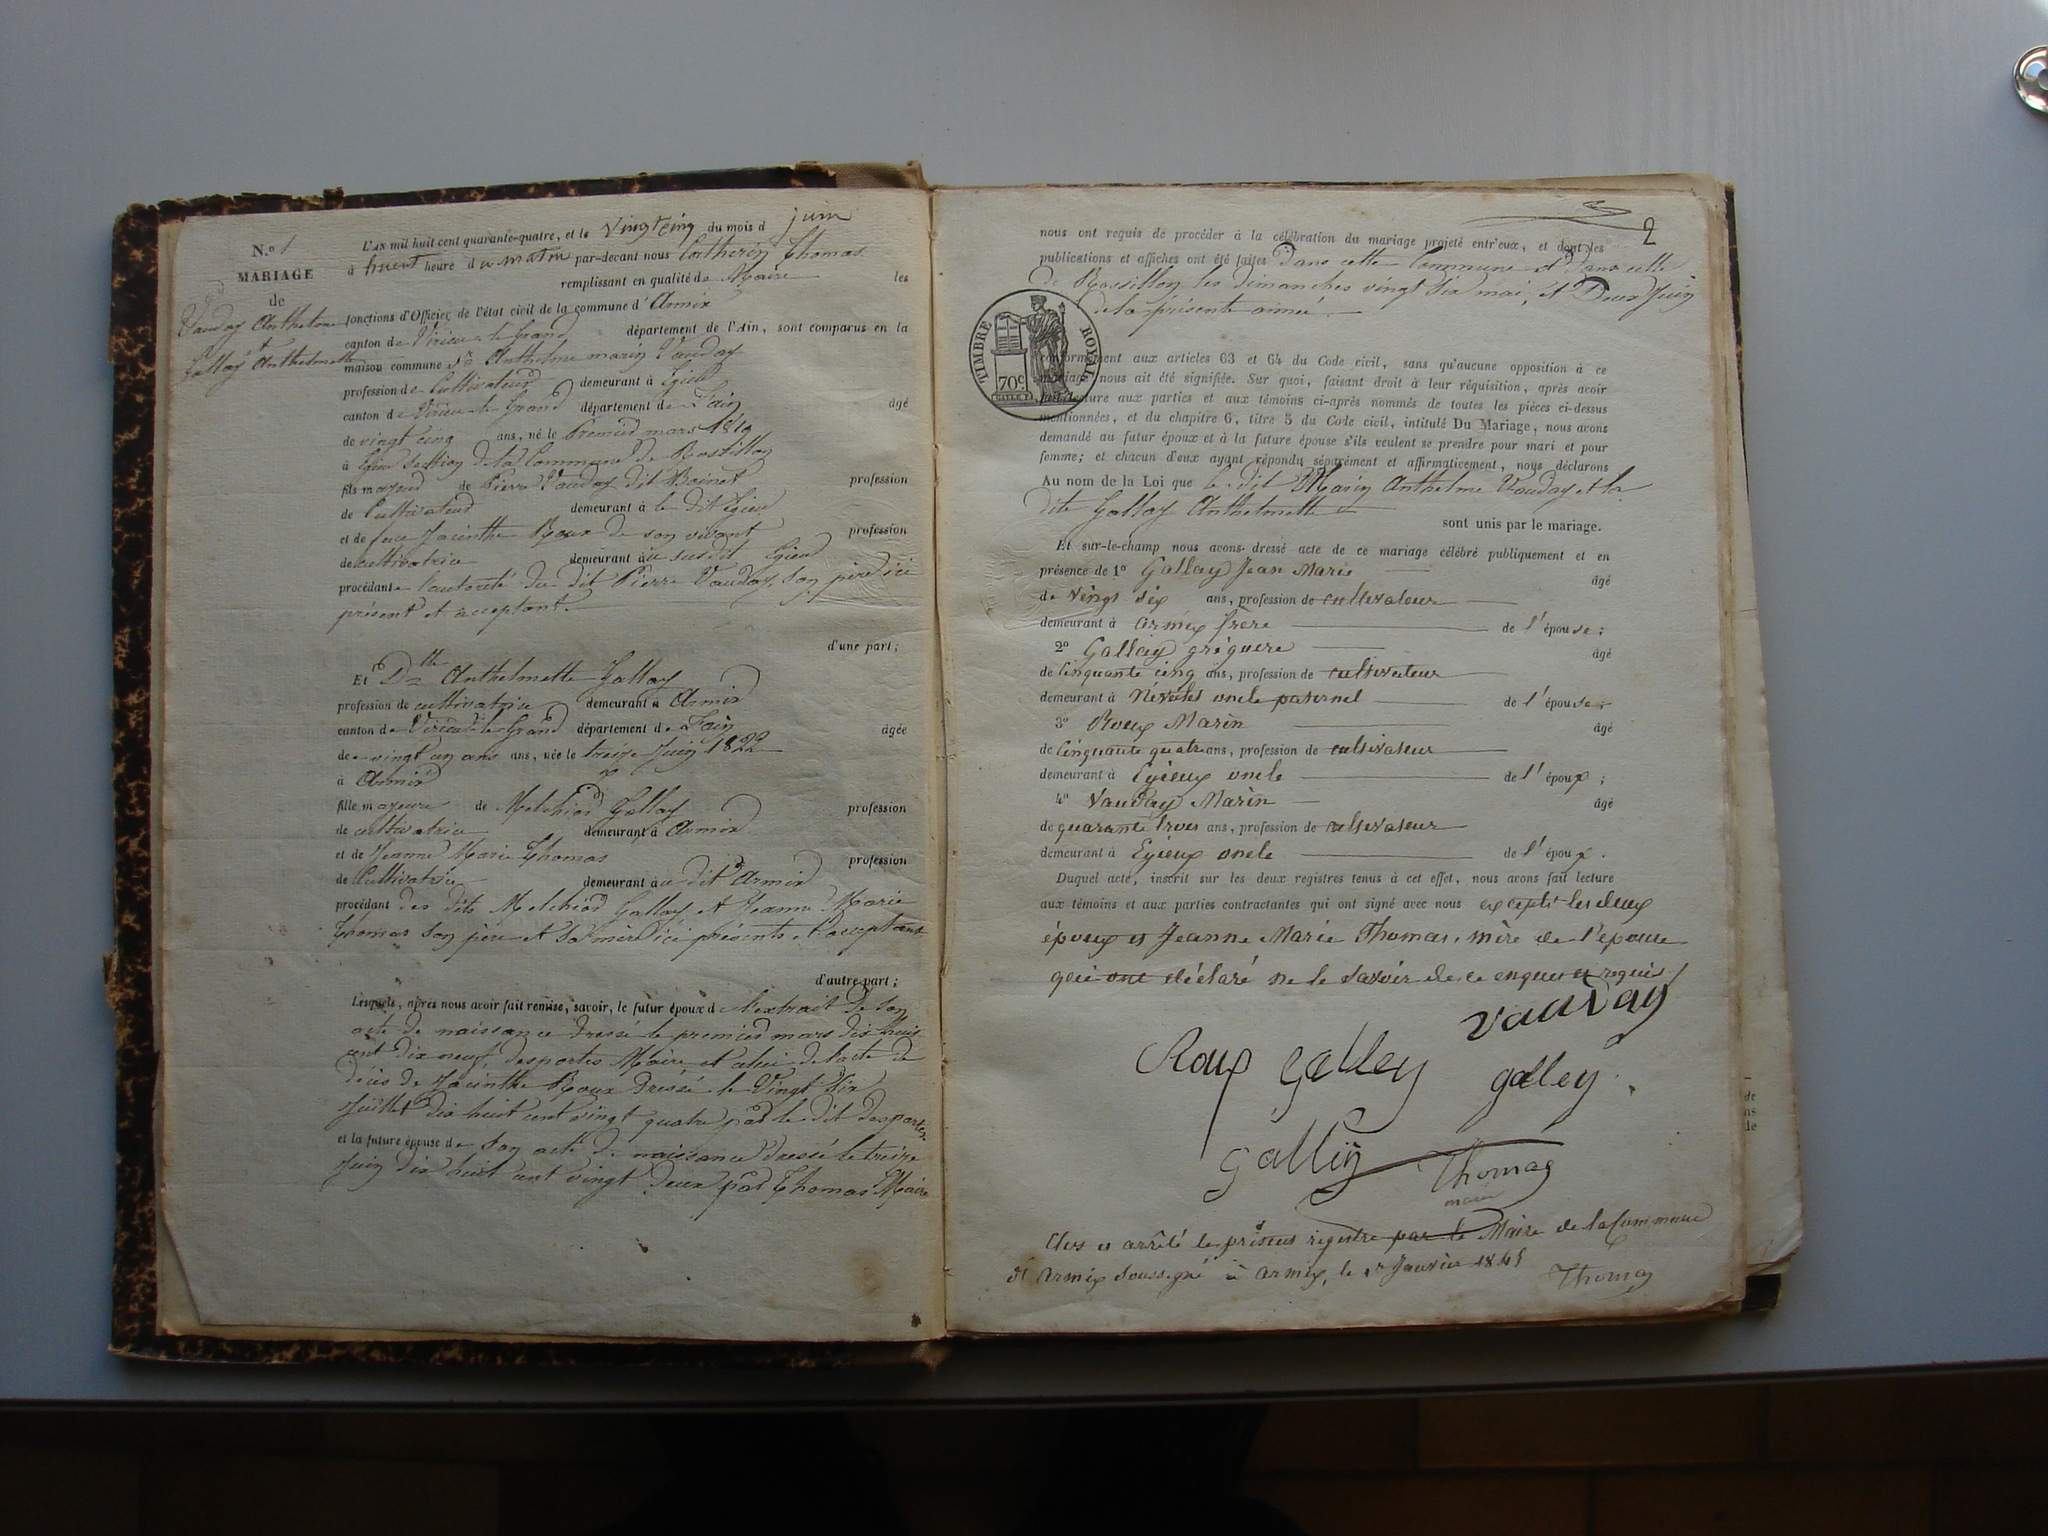 N.º 1
MARIAGE
de
Vauday Anthelme
et
Gallay Anthelmette
L'AN mil huit cent quarante-quatre, et le vingt cinq du mois d juin
à huit heure du matin par-devant nous Catherin Thomas
remplissant en qualité de Maire les
fonctions d'Officier de l'état civil de la commune d'Armix
canton de Virieu le Grand département de l'Ain, sont comparus en la
maison commune Sr Anthelme marin Vauday
profession de Cultivateur demeurant à Egieu
canton de Virieu le Grand département de l'ain âgé
de vingt cinq ans, né le Premier mars 1819
à Egieu section de la Commune de Rossillon
fils majeur de Pierre Vauday dit Boinet profession
de Cultivateur demeurant à le dit Egieu
et de feue Jacinthe Roux de son vivant profession
de cultivatrice demeurant au susdit Egieu
procédant de l'autorité du dit Pierre Vauday, son père ici
présent et acceptant.
d'une part;
Et Dlle Anthelmette Gallay
profession de cultivatrice demeurant à Armix
canton de Virieu le Grand département de l'ain âgée
de vingt un ans ans, née le treize Juin 1822
à Armix
fille majeure de Melchior Gallay profession
de cultivatrice demeurant à Armix
et de Jeanne Marie Thomas profession
de Cultivatrice demeurant au dit Armix
procédant des dits Melchior Gallay et Jeanne Marie
Thomas son père et sa mère ici présents et acceptant
d'autre part;
Lesquels, après nous avoir fait remise, savoir, le futur époux d l'extrait de son
acte de naissance dressé le premier mars dix huit
cent dix neuf desportes Maire et celui de l'acte de
décès de Jacinthe Roux dressé le vingt six
Juillet dix huit cent vingt quatre par le dit desportes
et la future épouse de son acte de naissance dressé le treize
Juin dix huit cent vingt deux par Thomas Maire
2
nous ont requis de procéder à la célébration du mariage projeté entr'eux, et dont les
publications et affiches ont été faites dans cette Commune et dans celle
de Rossillon les dimanches vingt six mai, et Deux Juin
de la présente année.
TIMBRE ROYAL
70c
conformément aux articles 63 et 64 du Code civil, sans qu'aucune opposition à ce
mariage nous ait été signifiée. Sur quoi, faisant droit à leur réquisition, après avoir
fait lecture aux parties et aux témoins ci-après nommés de toutes les pièces ci-dessus
mentionnées, et du chapitre 6, titre 5 du Code civil, intitulé Du Mariage, nous avons
demandé au futur époux et à la future épouse s'ils veulent se prendre pour mari et pour
femme; et chacun d'eux ayant répondu séparément et affirmativement, nous déclarons
Au nom de la Loi que le dit Marin Anthelme Vauday et la
dite Gallay Anthelmette
sont unis par le mariage.
Et sur-le-champ nous avons dressé acte de ce mariage célébré publiquement et en
présence de 1º Gallay Jean Marie âgé
de vingt six ans, profession de cultivateur
demeurant à armix frere de l'épouse;
2º Gallay gréguere âgé
de Cinquante cinq ans, profession de cultivateur
demeurant à oncle paternel de l'épouse;
3º Roux Marin âgé
de Cinquante quatre ans, profession de cultivateur
demeurant à Egieux oncle de l'époux;
4º Vauday Marin âgé
de quarante trois ans, profession de cultivateur
demeurant à Egieux oncle de l'époux.
Duquel acte, inscrit sur les deux registres tenus à cet effet, nous avons fait lecture
aux témoins et aux parties contractantes qui ont signé avec nous excepté les deux
époux et Jeanne Marie Thomas, mère de l'epouse
qui ont déclaré ne le savoir de ce enquis et requis
vauday
Roux galley galley
Gallÿ Thomas
maire
Clos et arrêté le présent registre par le Maire de la Commune
d'Armix soussigné à armix, le 1r Janvier 1845
Thomas